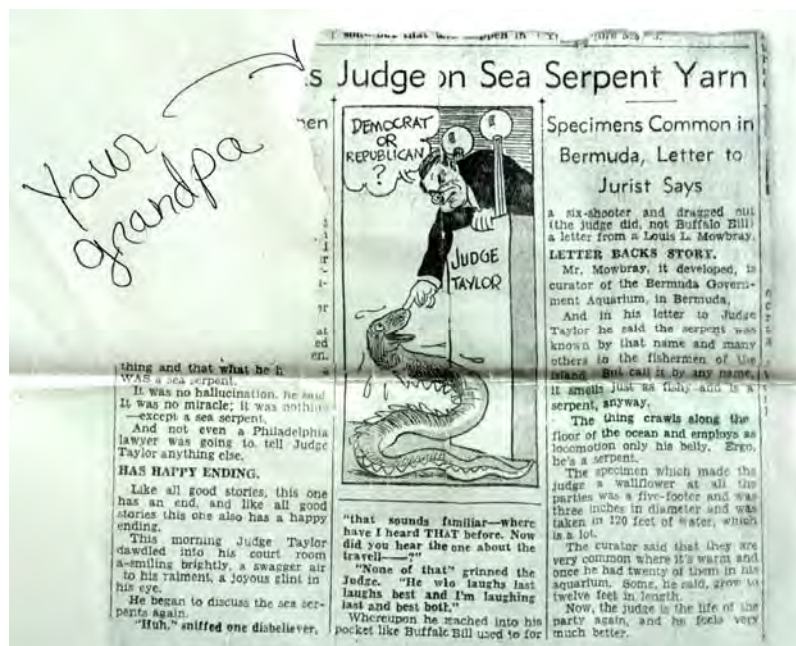 Your
grandpa
s Judge on Sea Serpent Yarn
DEMOCRAT
OR
REPUBLICAN
?
JUDGE
TAYLOR
Specimens Common in
Bermuda, Letter to
Jurist Says
thing and that what he h
WAS a sea serpent.
It was no hallucination, he said
It was no miracle; it was nothing
—except a sea serpent.
And not even a Philadelphia
lawyer was going to tell Judge
Taylor anything else.
HAS HAPPY ENDING.
Like all good stories, this one
has an end, and like all good
stories this one also has a happy
ending.
This morning Judge Taylor
dawdled into his court room
a-smiling brightly, a swagger air
to his raiment, a joyous glint in
his eye.
He began to discuss the sea ser-
pents again.
"Huh," sniffed one disbeliever,
"that sounds familiar—where
have I heard THAT before. Now
did you hear the one about the
travell——?"
"None of that" grinned the
Judge. "He who laughs last
laughs best and I'm laughing
last and best both."
Whereupon he reached into his
pocket like Buffalo Bill used to for
a six-shooter and dragged out
(the judge did, not Buffalo Bill)
a letter from a Louis L. Mowbray.
LETTER BACKS STORY.
Mr. Mowbray, it developed, is
curator of the Bermuda Govern-
ment Aquarium, in Bermuda.
And in his letter to Judge
Taylor he said the serpent was
known by that name and many
others to the fishermen of the
island. But call it by any name,
it smells just as fishy and is a
serpent, anyway.
The thing crawls along the
floor of the ocean and employs as
locomotion only his belly. Ergo,
he's a serpent.
The specimen which made the
judge a wallflower at all the
parties was a five-footer and was
three inches in diameter and was
taken in 120 feet of water, which
is a lot.
The curator said that they are
very common where it's warm and
once he had twenty of them in his
aquarium. Some, he said, grow to
twelve feet in length.
Now, the judge is the life of the
party again, and he feels very
much better.